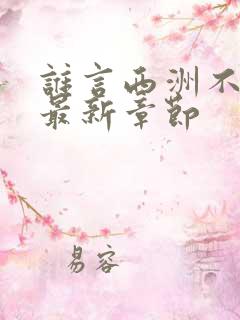 誰言西洲不
最新章節
易容